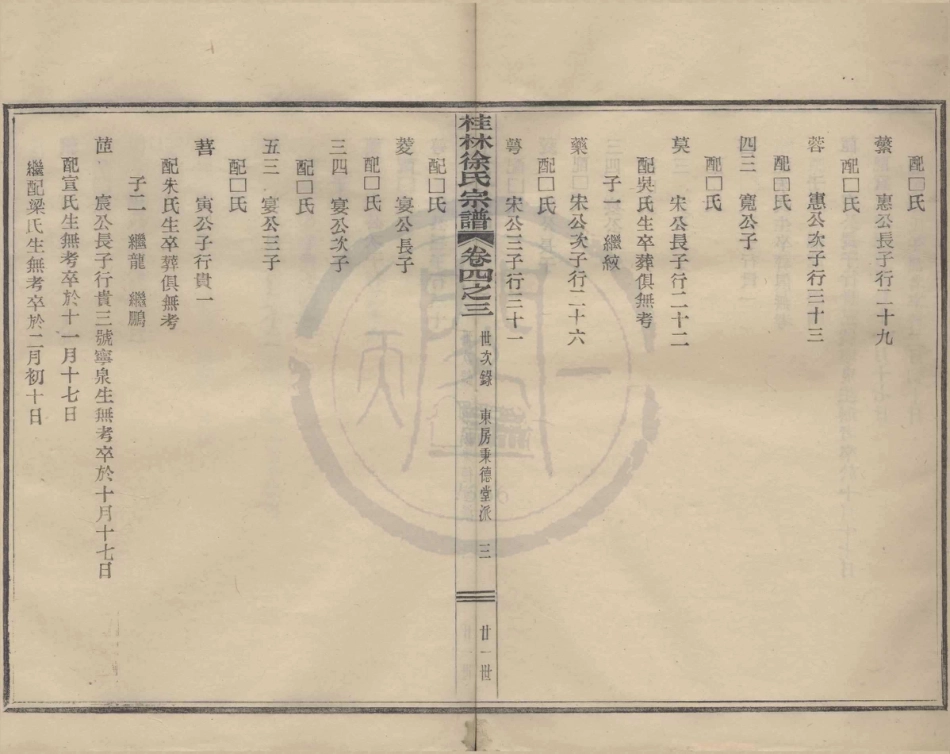 配□氏
蘩 惠公長子行二十九
配□氏
蓉 惠公次子行三十三
配□氏
四三 寬公子
配□氏
莫 宋公長子行二十二
配吳氏生卒葬俱無考
子一 繼紋
藥 宋公次子行二十六
配□氏
萼 宋公三子行三十一
桂林徐氏宗譜 卷四之三 世次錄 東房秉德堂派 三 廿一世
配□氏
菱 宴公長子
配□氏
三四 宴公次子
配□氏
五三 宴公三子
配□氏
萻 寅公子行貴一
配朱氏生卒葬俱無考
子二 繼龍 繼鵬
宸公長子行貴三號寧泉生無考卒於十月十七日
配宣氏生無考卒於十一月十七日
繼配梁氏生無考卒於二月初十日